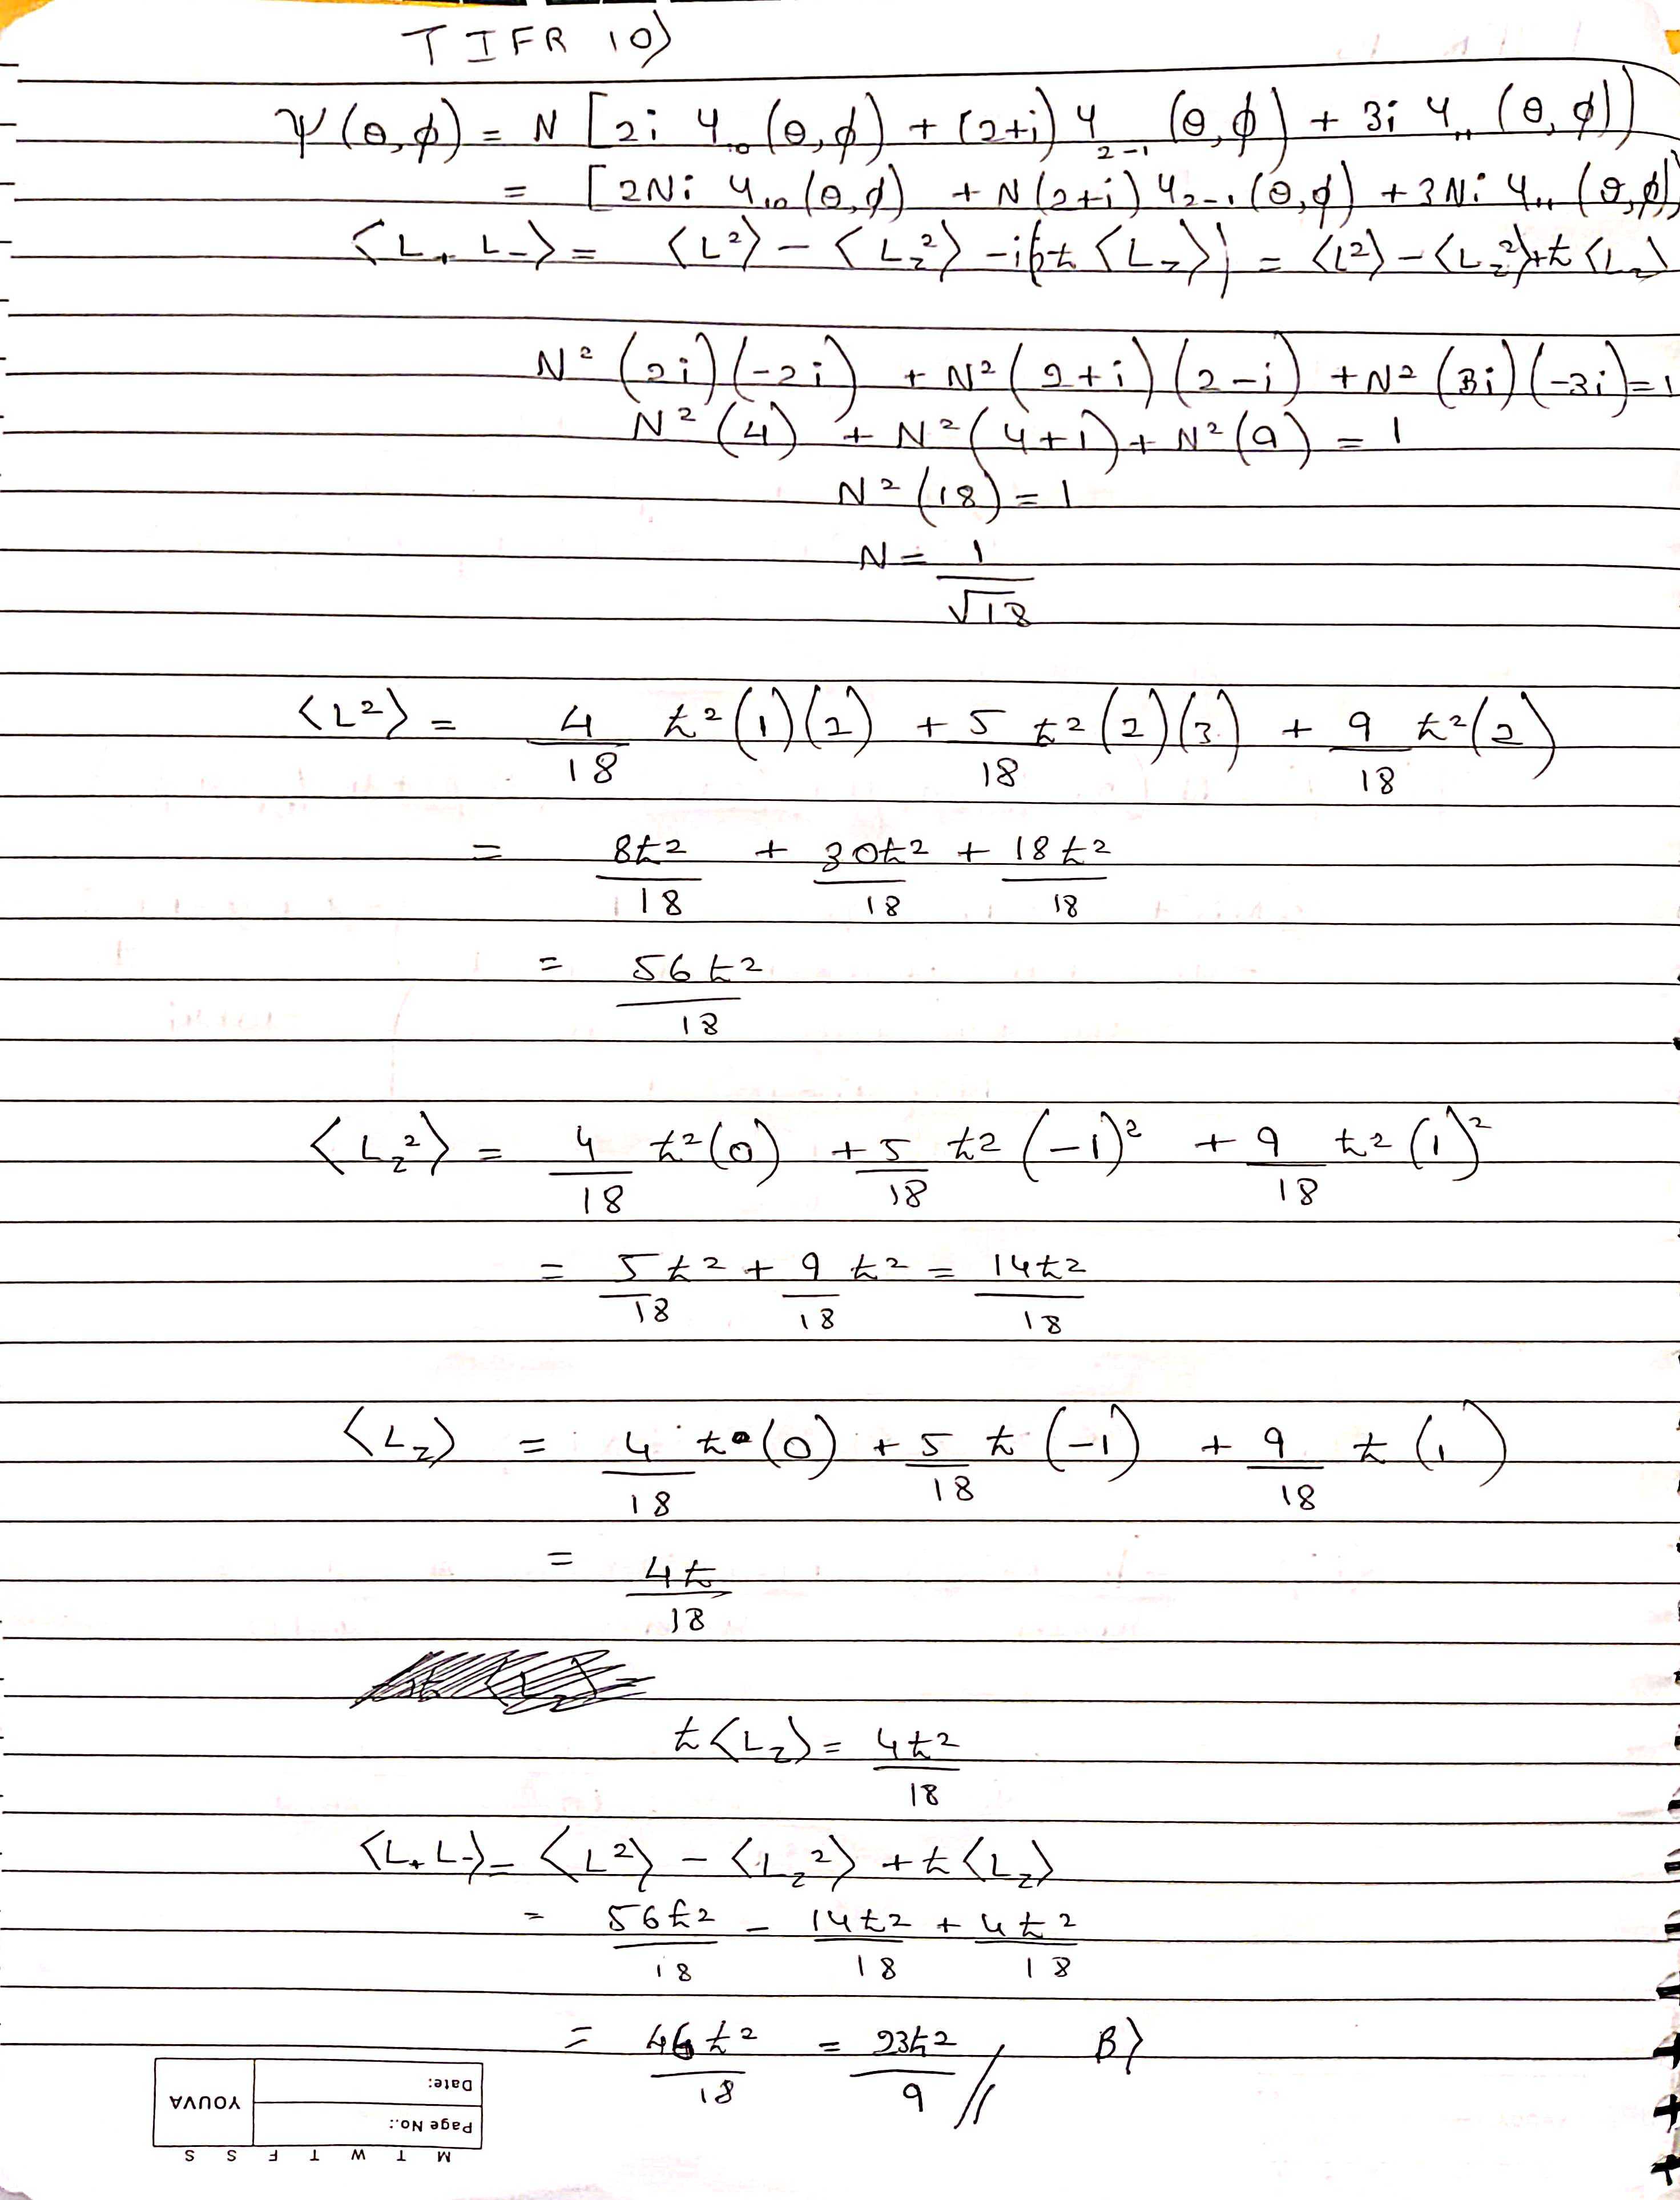 TIFR 10)
ψ(θ,φ) = N [2i Y₁₀ (θ,φ) + (2+i) Y₂₋₁ (θ,φ) + 3i Y₁₁ (θ,φ)]
= [2Ni Y₁₀ (θ,φ) + N(2+i) Y₂₋₁ (θ,φ) + 3Ni Y₁₁ (θ,φ)]
⟨L₊ L₋⟩ = ⟨L²⟩ − ⟨L_z²⟩ − i(iħ ⟨L_z⟩) = ⟨L²⟩ − ⟨L_z²⟩ + ħ ⟨L_z⟩
N² (2i)(−2i) + N² (2+i)(2−i) + N² (3i)(−3i) = 1
N² (4) + N² (4+1) + N² (9) = 1
N² (18) = 1
N = 1/√18
⟨L²⟩ = 4/18 ħ² (1)(2) + 5/18 ħ² (2)(3) + 9/18 ħ² (2)
= 8ħ²/18 + 30ħ²/18 + 18ħ²/18
= 56ħ²/18
⟨L_z²⟩ = 4/18 ħ² (0) + 5/18 ħ² (−1)² + 9/18 ħ² (1)²
= 5ħ²/18 + 9ħ²/18 = 14ħ²/18
⟨L_z⟩ = 4/18 ħ (0) + 5/18 ħ (−1) + 9/18 ħ (1)
= 4ħ/18
ħ⟨L_z⟩ = 4ħ²/18
⟨L₊ L₋⟩ = ⟨L²⟩ − ⟨L_z²⟩ + ħ ⟨L_z⟩
= 56ħ²/18 − 14ħ²/18 + 4ħ²/18
= 46ħ²/18 = 23ħ²/9 // B)
YOUVA
Date:
Page No.:
M T W T F S S